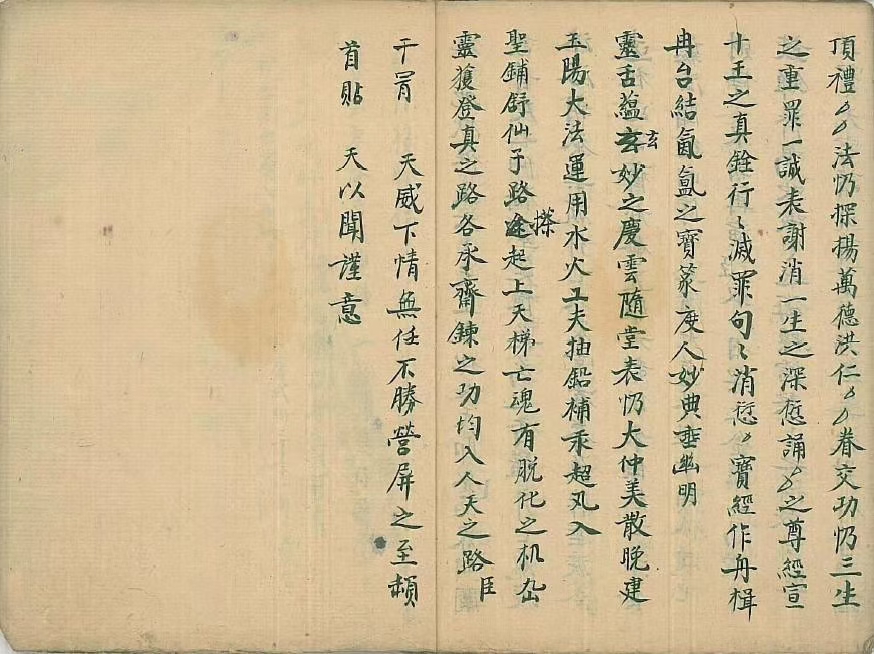 頂禮〻〻法忉探揚萬德洪仁〻〻眷交功忉三生
之重罪一誠表謝消一生之深愆誦〻之尊經宣
十王之真銓行〻滅罪句〻消愆〻寶經作舟楫
冉台結氤氳之寶篆度人妙典垂幽明
靈古蘊玄玄妙之慶雲隨堂表忉大仲美散晚建
玉陽大法運用水火工夫抽鉛補汞超凡入
聖鋪舒仙子路途搽起上天梯亡魂有脱化之机岔
靈獲登真之路各承齋鍊之功均入人天之路臣
干罥 天威下情無任不勝營屏之至頼
首貼 天以聞謹意